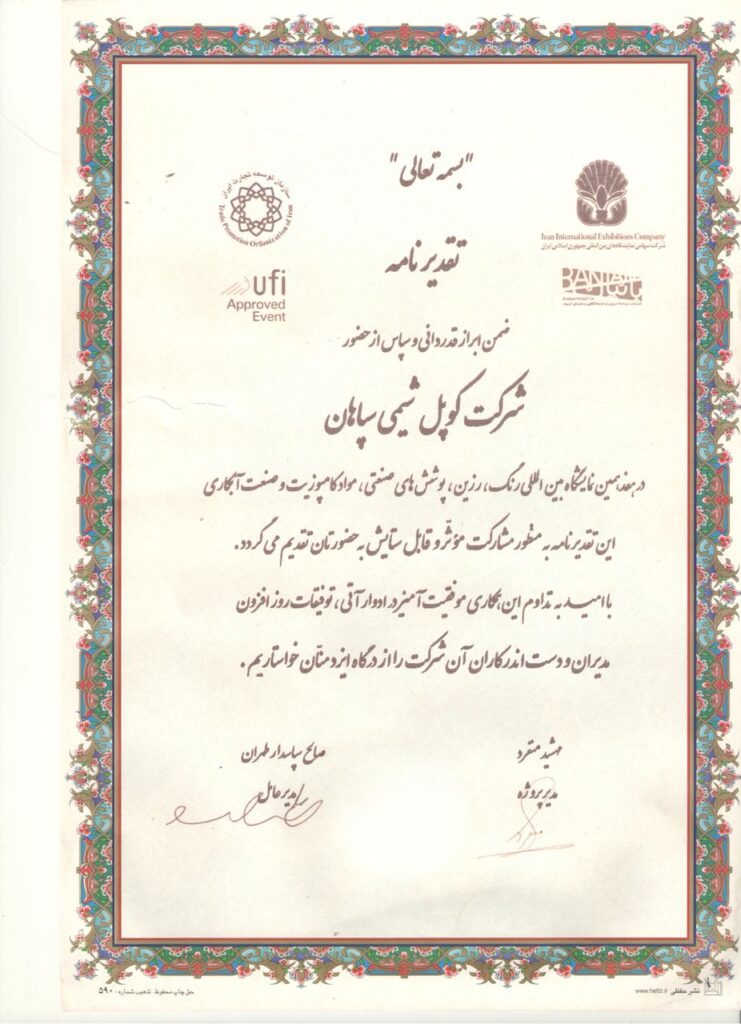 "بسمه تعالی"
سازمان توسعه تجارت ایران
Trade Promotion Organization of Iran
Iran International Exhibitions Company
شرکت سهامی نمایشگاه‌های بین‌المللی جمهوری اسلامی ایران
تقدیرنامه
BANIAN
بانیان
ufi
Approved
Event
ضمن ابراز قدردانی و سپاس از حضور
شرکت کوپل شیمی سپاهان
در هفدهمین نمایشگاه بین المللی رنگ، رزین، پوشش های صنعتی، مواد کامپوزیت و صنعت آبکاری
این تقدیرنامه به منظور مشارکت مؤثر و قابل ستایش به حضورتان تقدیم می گردد.
با امید به تداوم این همکاری موفقیت آمیز در ادوار آتی، توفیقات روز افزون
مدیران و دست اندرکاران آن شرکت را از درگاه ایزد منّان خواستاریم.
مهشید منفرد
صالح پاسدار طهران
مدیر پروژه
مدیرعامل
www.hefzi.ir نشر حفظی
حق چاپ محفوظ. تذهیب شماره: ۵۹۰